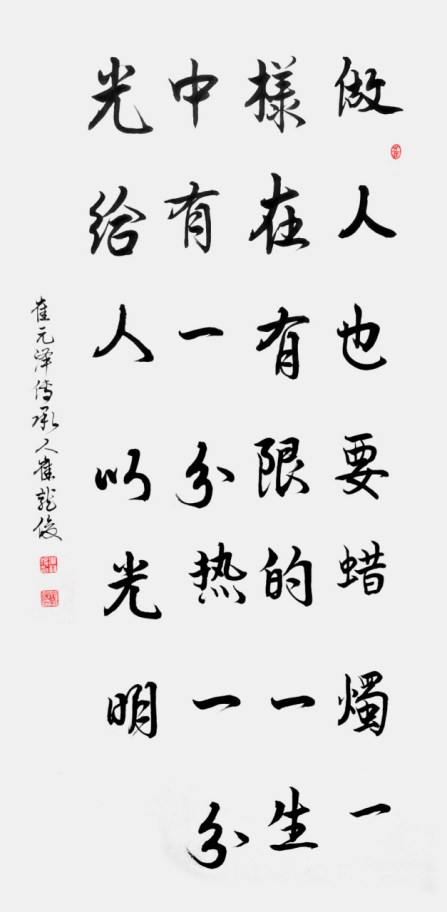 做人也要蜡燭一
樣在有限的一生
中有一分热一分
光给人以光明
崔元泽传承人崔龍俊